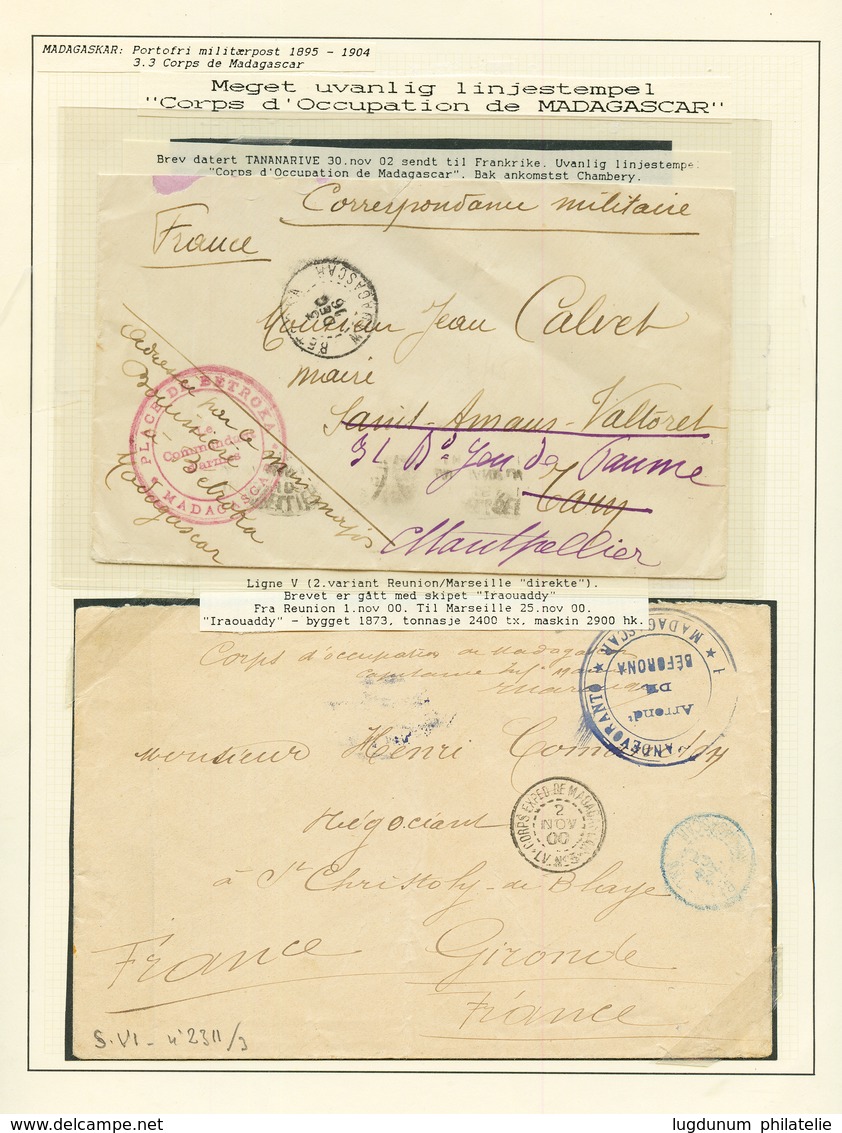 MADAGASKAR: Portofri militærpost 1895 - 1904
3.3 Corps de Madagascar
Meget uvanlig linjestempel
"Corps d'Occupation de MADAGASCAR"
Brev datert TANANARIVE 30.nov 02 sendt til Frankrike. Uvanlig linjestempel
"Corps d'Occupation de Madagascar". Bak ankomstst Chambery.
Correspondance militaire
France
Monsieur Jean Calvet
maire
Saint-Amans-Valtoret
31 Bd Jeu de Paume
Tarn
Montpellier
PLACE DE BETROKA
Le
Commandant
d'armes
MADAGASCAR
Betroka
Madagascar
Ligne V (2.variant Reunion/Marseille "direkte").
Brevet er gått med skipet "Iraouaddy"
Fra Reunion 1.nov 00. Til Marseille 25.nov 00.
"Iraouaddy" - bygget 1873, tonnasje 2400 tx, maskin 2900 hk.
Corps d'occupation de Madagascar
ANDEVORANTO ★ MADAGASCAR ★
Arrondt
DE
BÉFORONA
Monsieur Henri
Négociant
CORPS EXPED. DE MADAGASCAR
2
NOV
00
LV. N°3
à St Christoly-de-Blaye
France
Gironde
France
S.VI - n°2311/3
lugdunum philatelie